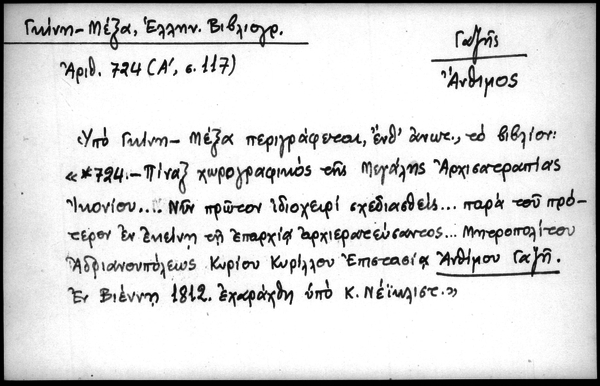 Γκίνη - Μέξα, Ἑλλην. Βιβλιογρ.
Ἀριθ. 724 (Α', σ. 117)
Γαζῆς
Ἄνθιμος
Ὑπό Γκίνη - Μέξα περιγράφεται, ἔνθ' ἀνωτ., τό βιβλίον:
« *724.- Πίναξ χωρογραφικός τῆς Μεγάλης Ἀρχισατραπίας
Ἰκονίου.... Νῦν πρῶτον ἰδιοχείρί σχεδιασθείς... παρά τοῦ πρό-
τερον ἐν ἐκείνῃ τῇ ἐπαρχίᾳ ἀρχιερατεύσαντος... Μητροπολίτου
Ἀδριανουπόλεως Κυρίου Κυρίλλου Ἐπιστασίᾳ Ἀνθίμου Γαζῆ.
Ἐν Βιέννῃ 1812. Ἐχαράχθη ὑπό Κ. Νέϊκλιστ.»